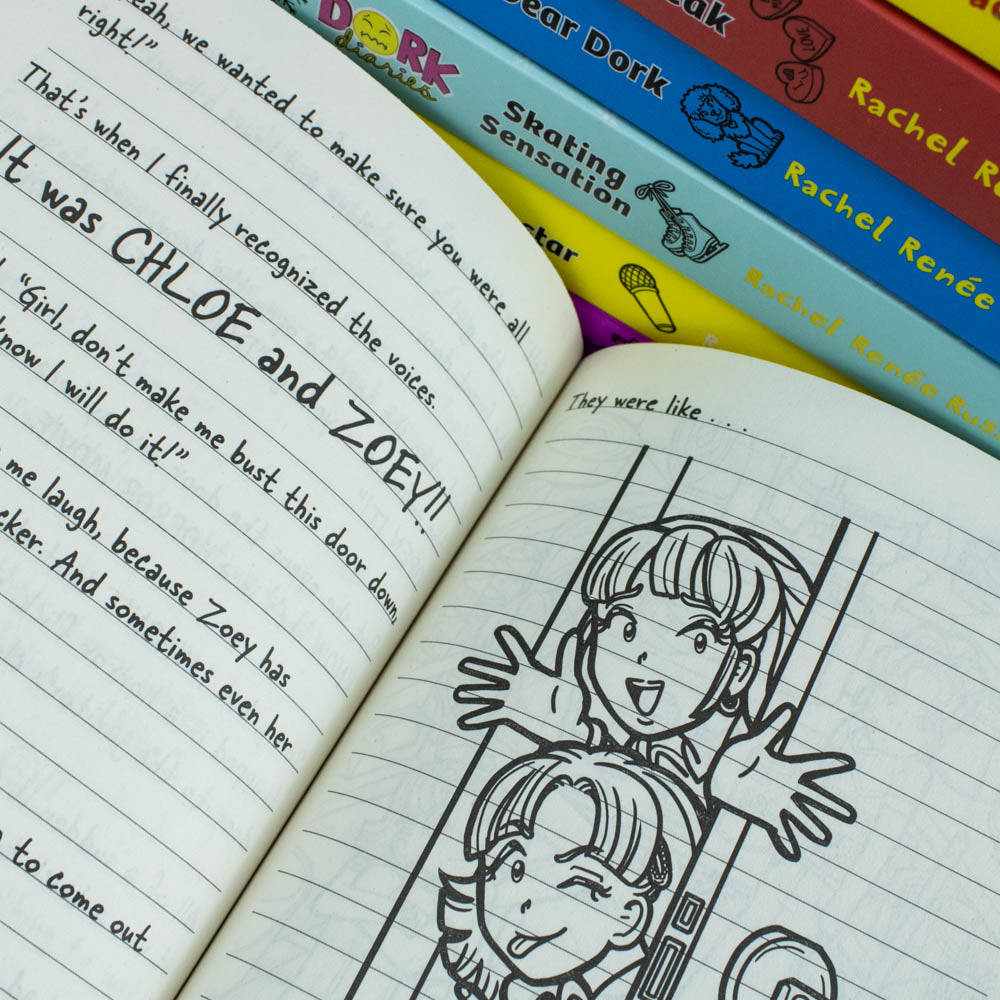 eah, we wanted to make sure you were all
right!"
That's when I finally recognized the voices.
It was CHLOE and ZOEY!!
"Girl, don't make me bust this door down,
know I will do it!"
me laugh, because Zoey has
cker. And sometimes even her
to come out
They were like . . .
DORK
diaries
Skating
Sensation
Rachel Renée Russ
Dear Dork
Rachel Renée
eak
LOVE
Rachel R
star
R